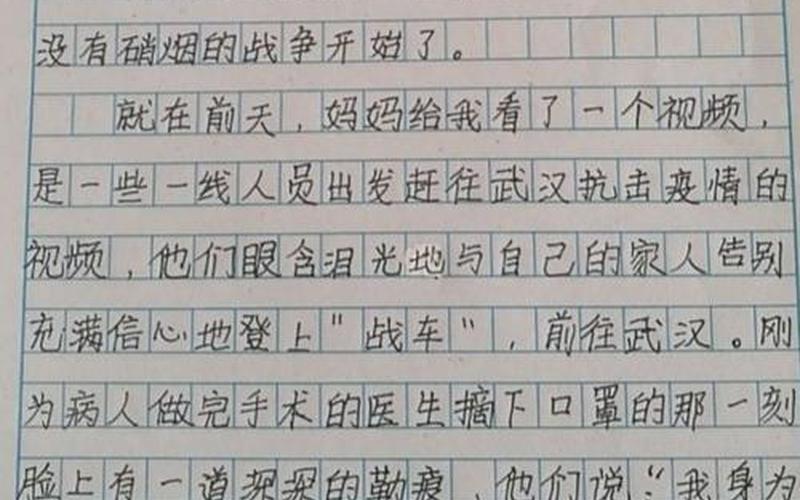 没有硝烟的战争开始了。
就在前天，妈妈给我看了一个视频，
是一些一线人员出发赶往武汉抗击疫情的
视频，他们眼含泪光地与自己的家人告别
充满信心地登上"战车"，前往武汉。刚
为病人做完手术的医生摘下口罩的那一刻
脸上有一道深深的勒痕，他们说“我身为